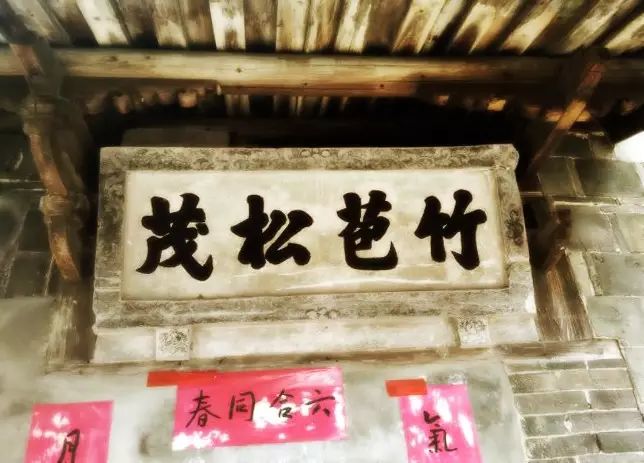 竹苞松茂
六合同春
氣
月